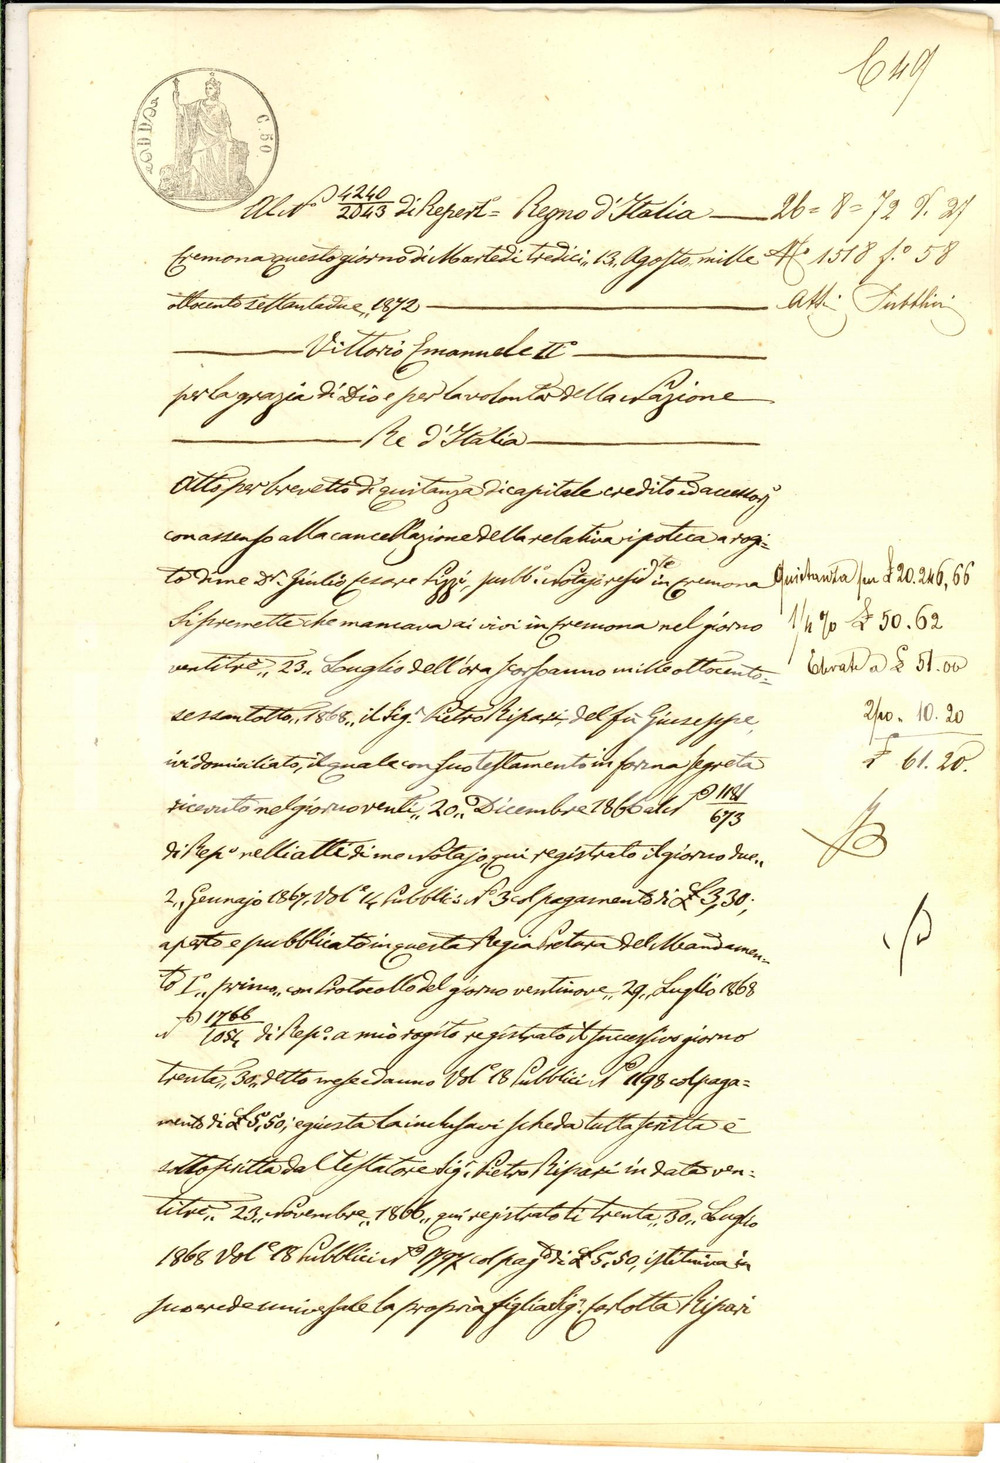 C 49
C. 50
Al N.o 4240/2043 di Repert.o = Regno d'Italia
26 = 8 = 72 9. 27
Cremona questo giorno di Martedì tredici,, 13,, Agosto mille
N.o 1518 f.o 58
ottocento settantadue,, 1872
Atti Pubblici
Vittorio Emanuele II.o
per la grazia di Dio e per la volontà della Nazione
Re d'Italia
Atto per brevetto di quitanza di capitale credito ed accessorj
con assenso alla cancellazione della relativa ipoteca a rogi=
to di me D.r Giulio Cesare Pizzi, pubb.o Notajo resid.te in Cremona
Quietanza per £ 20.246,66
Si premette che mancava ai vivi in Cremona nel giorno
1/4 % £ 50.62
ventitrè,, 23,, Luglio dell'ora scorso anno mille ottocento=
Elevate a £ 51.00
sessantotto,, 1868,, il Sig.r Pietro Ripari del fu Giuseppe,
2/10. 10.20
ivi domiciliato, il quale con suo testamento in forma segreta
£ 61.20.
ricevuto nel giorno venti,, 20,, Dicembre 1866 al N.o 1181/673
di Rep.o nelli atti di me Notajo, qui registrato il giorno due,,
2,, Gennajo 1867. Vol.e 14 Pubblici N.o 3 col pagamento di £ 3,30;
aperto e pubblicato in questa Regia Pretura del Mandamen=
to I.o,, primo,, con Protocollo del giorno ventinove,, 29,, Luglio 1868
N.o 1766/1054 di Rep.o a mio rogito registrato il successivo giorno
trenta,, 30,, detto mese ed anno Vol.e 18 Pubblici N.o 1198 col paga=
mento di £ 5,50; e giusta la inclusavi scheda tutta scritta e
sottoscritta dal testatore Sig.r Pietro Ripari in data ven=
titrè,, 23,, Novembre,, 1866,, qui registrato li trenta,, 30,, Luglio
1868 Vol.e 18 Pubblici N.o 1797 col pag.to di £ 5,50, istituiva in
sua erede universale la propria figlia Sig.a Carlotta Ripari